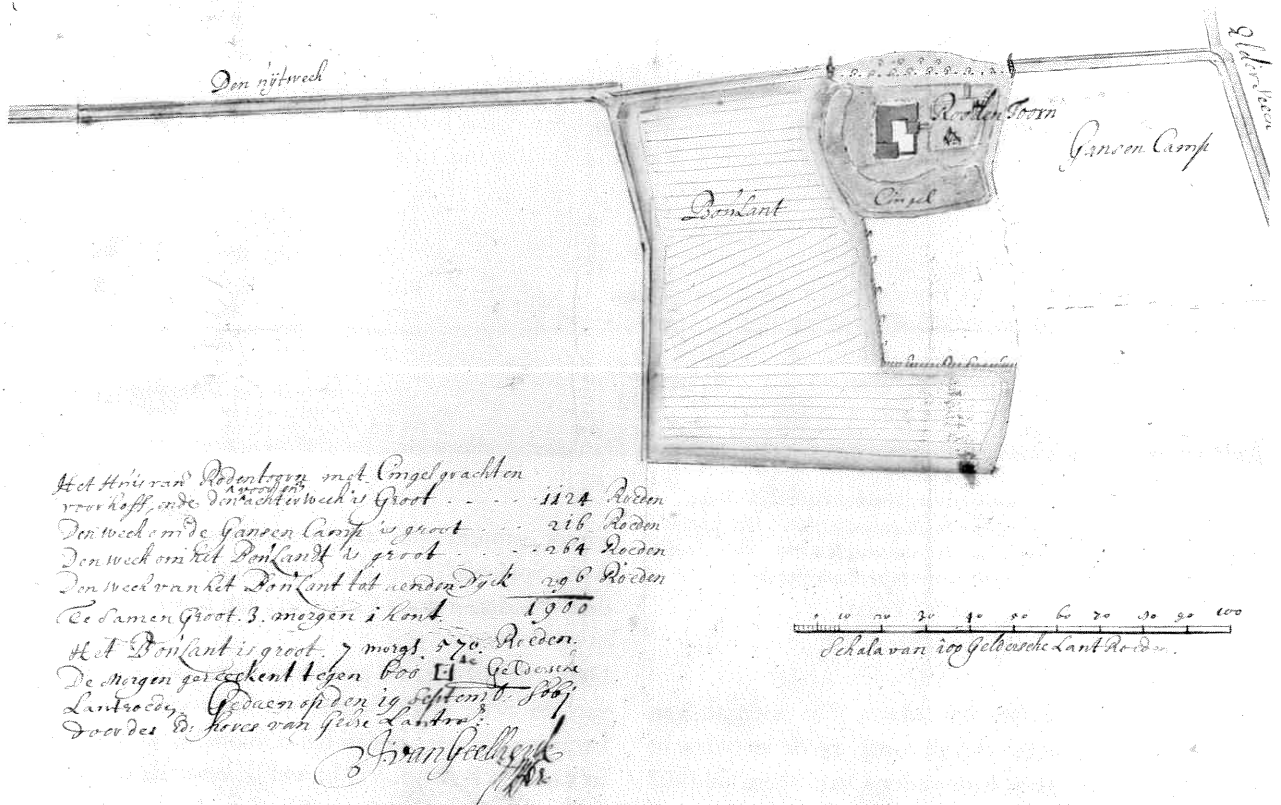 Den uÿtwech
Rooden Toorn
Gansen Camp
Cingel
Bou Lant
Het Huis van Rodentoorn met Cingel grachten
voorhoff, ende den voor en achterwech is Groot - - - 1124 Roeden
Den wech om de Gansen Camp is groot - - - 216 Roeden
Den wech om het Bou Landt is groot - - - 264 Roeden
Den wech van het Bou Lant tot aen den Dyck 296 Roeden
Te Samen Groot. 3. morgen 1 hont 1900
Het Bou Lant is groot. 7 morgs. 570. Roeden.
De Morgen gereeckent tegen 600 Geldersche
Lantroeden. Gedaen op den 19 Septemb.
door des Ed: hoves van Gelre Lantm
J. van Geelkerck
0 10 20 30 40 50 60 70 80 90 100
Schala van 100 Geldersche Lant Roeden.